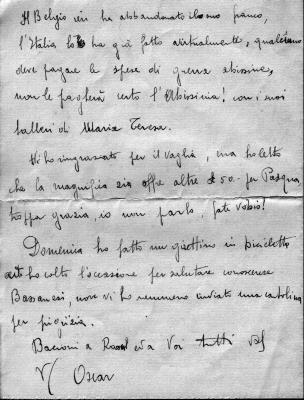 Il Belgio ieri ha abbandonato il suo franco,
l'Italia lo ha già fatto virtualmente, qualcuno
deve pagare le spese di guerra abissine,
non le pagherà certo l'Abissinia! con i suoi
talleri di Maria Teresa.
Vi ho ringraziato per il vaglia, ma ho letto
che la magnifica zia offre altre £ 50.- per Pasqua
troppa grazia, io non parlo, fate Vobis!
Domenica ho fatto un girettino in bicicletta
ed ho colto l'occasione per salutare conoscenze
Bassanesi, non vi ho nemmeno inviato una cartolina
per pigrizia.
Bacioni a ed a Voi tutti
Oscar